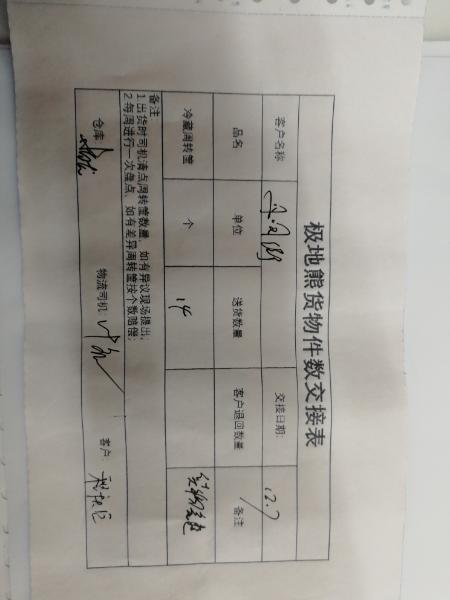 极地熊货物件数交接表
客户名称 交接日期: 12.7
品名 单位 送货数量 客户退回数量 备注
冷藏周转筐 个 14
备注
1.出货时司机请点周转筐数量,如有异议现场提出;
2.每周进行一次盘点,如有差异周转筐按个数赔偿;
仓库: 物流司机: 客户: